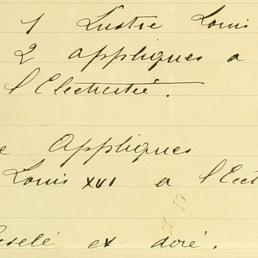 1 Lustre Louis
2 appliques a
l'Electricité.
Appliques
Louis XVI a l'Elect
et doré.